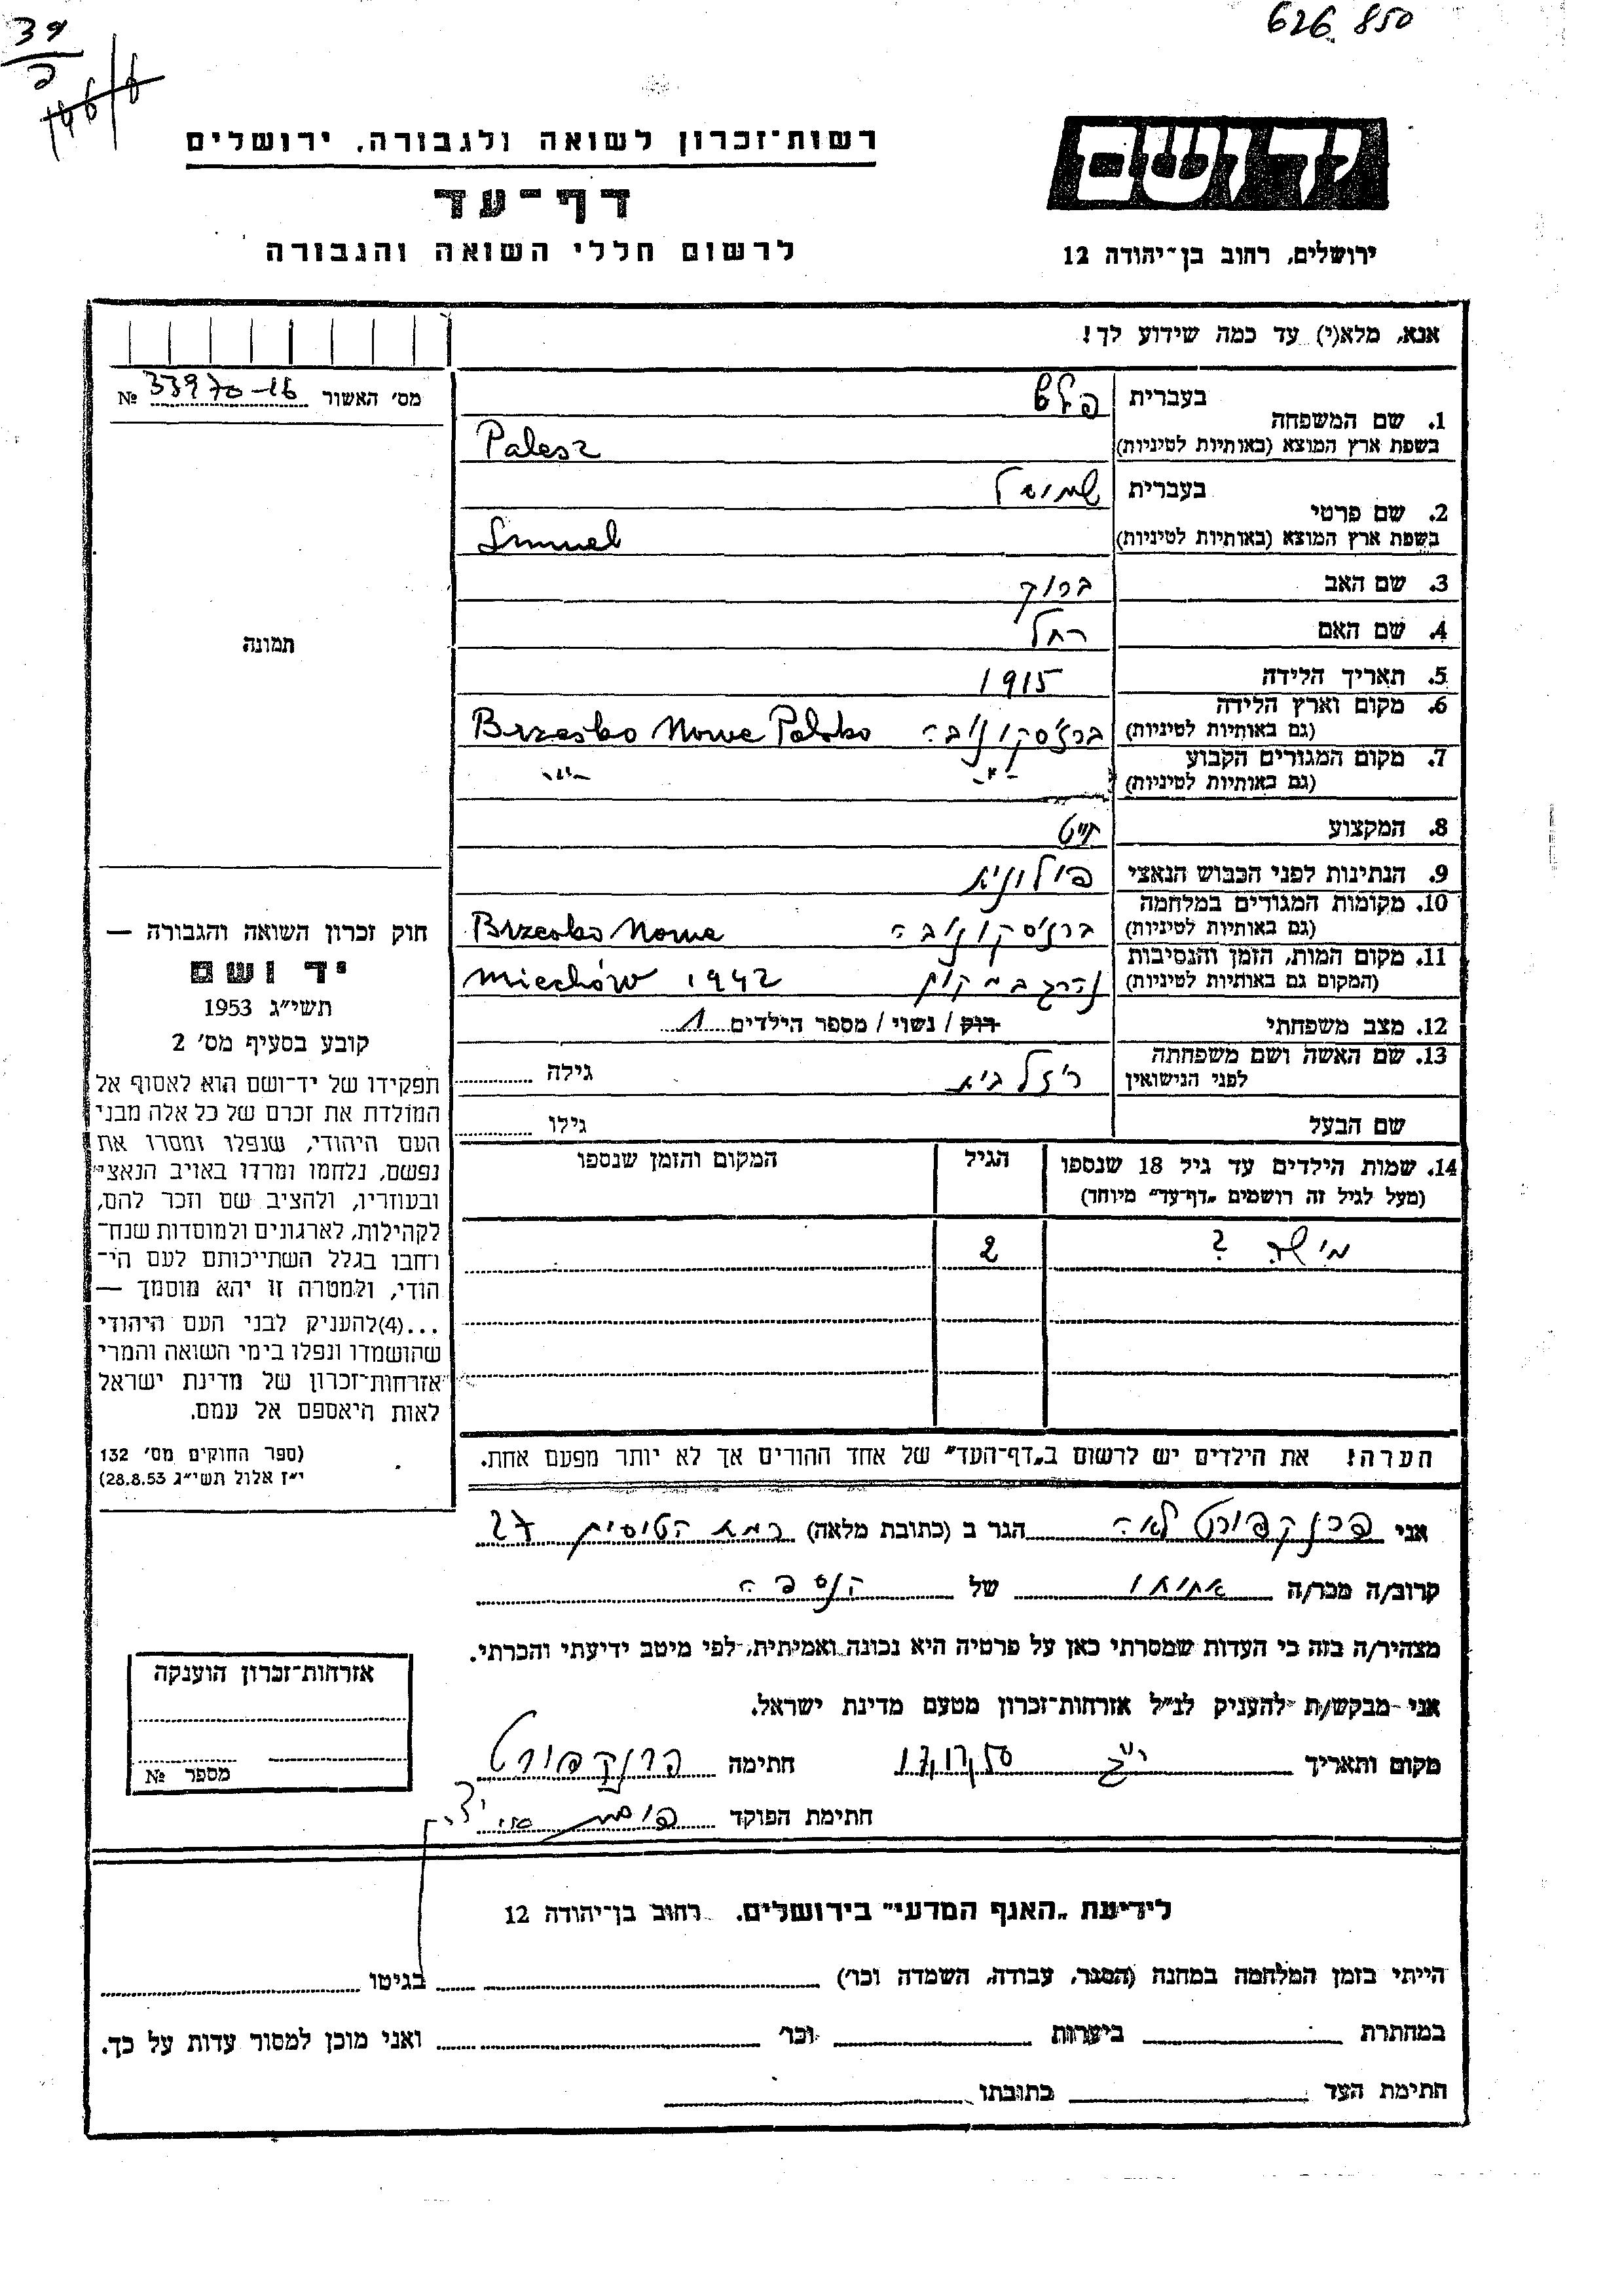 626 850
39
רשות־זכרון לשואה ולגבורה, ירושלים
יד ושם
דף־עד
לרשום חללי השואה והגבורה
ירושלים, רחוב בן־יהודה 12
אנא, מלא(י) עד כמה שידוע לך!
מס' האשור 33970-16 №
1. שם המשפחה
בעברית פלש
בשפת ארץ המוצא (באותיות לטיניות) Palesz
2. שם פרטי
בעברית שמואל
בשפת ארץ המוצא (באותיות לטיניות) Smuel
3. שם האב ברוך
4. שם האם רחל
תמונה
5. תאריך הלידה 1915
6. מקום וארץ הלידה
(גם באותיות לטיניות) ברז'סקו נובה Brzesko Nowe Polska
7. מקום המגורים הקבוע
(גם באותיות לטיניות) -"- -"-
8. המקצוע חייט
9. הנתינות לפני הכבוש הנאצי פולוניא
10. מקומות המגורים במלחמה
(גם באותיות לטיניות) ברז'סקו נובה Brzesko Nowe
11. מקום המות, הזמן והנסיבות
(המקום גם באותיות לטיניות) נהרג במקום Miechów 1942
12. מצב משפחתי רוק / נשוי / מספר הילדים 1
13. שם האשה ושם משפחתה
לפני הנישואין גילה
שם הבעל גילו
14. שמות הילדים עד גיל 18 שנספו הגיל המקום והזמן שנספו
(מעל לגיל זה רושמים "דף־עד" מיוחד)
? 2
הערה! את הילדים יש לרשום ב"דף־העד" של אחד ההורים אך לא יותר מפעם אחת.
חוק זכרון השואה והגבורה —
יד ושם
תשי"ג 1953
קובע בסעיף מס' 2
תפקידו של יד־ושם הוא לאסוף אל
המולדת את זכרם של כל אלה מבני
העם היהודי, שנפלו ומסרו את
נפשם, נלחמו ומרדו באויב הנאצי
ובעוזריו, ולהציב שם וזכר להם,
לקהילות, לארגונים ולמוסדות שנח־
רחבו בגלל השתייכותם לעם הי־
הודי, ולמטרה זו יהא מוסמך —
...(4)להעניק לבני העם היהודי
שהושמדו ונפלו בימי השואה והמרי
אזרחות־זכרון של מדינת ישראל
לאות היאספם אל עמם.
(ספר החוקים מס' 132
י"ז אלול תשי"ג 28.8.53)
אני פרנקפורט לאה הגר ב (כתובת מלאה) רמת הטיסים 27
קרוב/ה מכר/ה אחותו של הנספה
מצהיר/ה בזה כי העדות שמסרתי כאן על פרטיה היא נכונה ואמיתית, לפי מיטב ידיעתי והכרתי.
אני מבקש/ת להעניק לנ"ל אזרחות־זכרון מטעם מדינת ישראל.
מקום ותאריך חתימה פרנקפורט
חתימת הפוקד
אזרחות־זכרון הוענקה
מספר №
לידיעת "האגף המדעי" בירושלים. רחוב בן־יהודה 12
הייתי בזמן המלחמה במחנה (הסגר, עבודה, השמדה וכו') בגיטו
במחתרת ביערות וכו' ואני מוכן למסור עדות על כך.
חתימת העד כתובתו